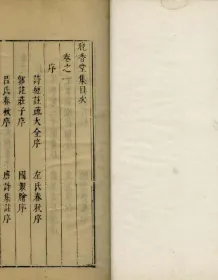 晚香堂集目次
卷之一
序
詩經註疏大全序
左氏春秋序
郭註莊子序
國策膾序
呂氏春秋序
唐詩集註序